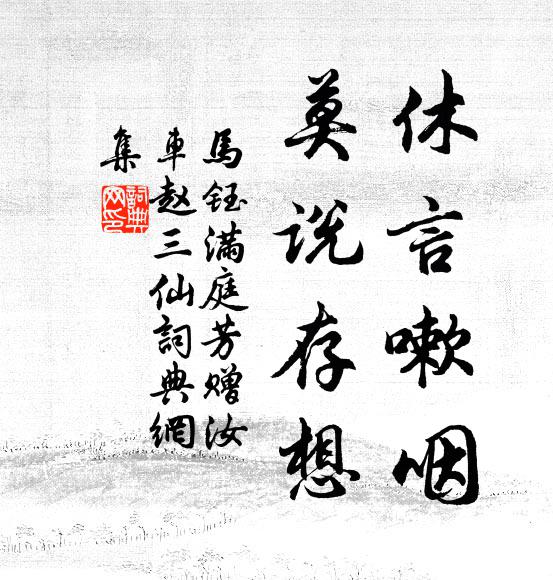 休言嗽咽
莫说存想
馬鈺滿庭芳赠汝
車赵三仙詞典網
集
詞典網印